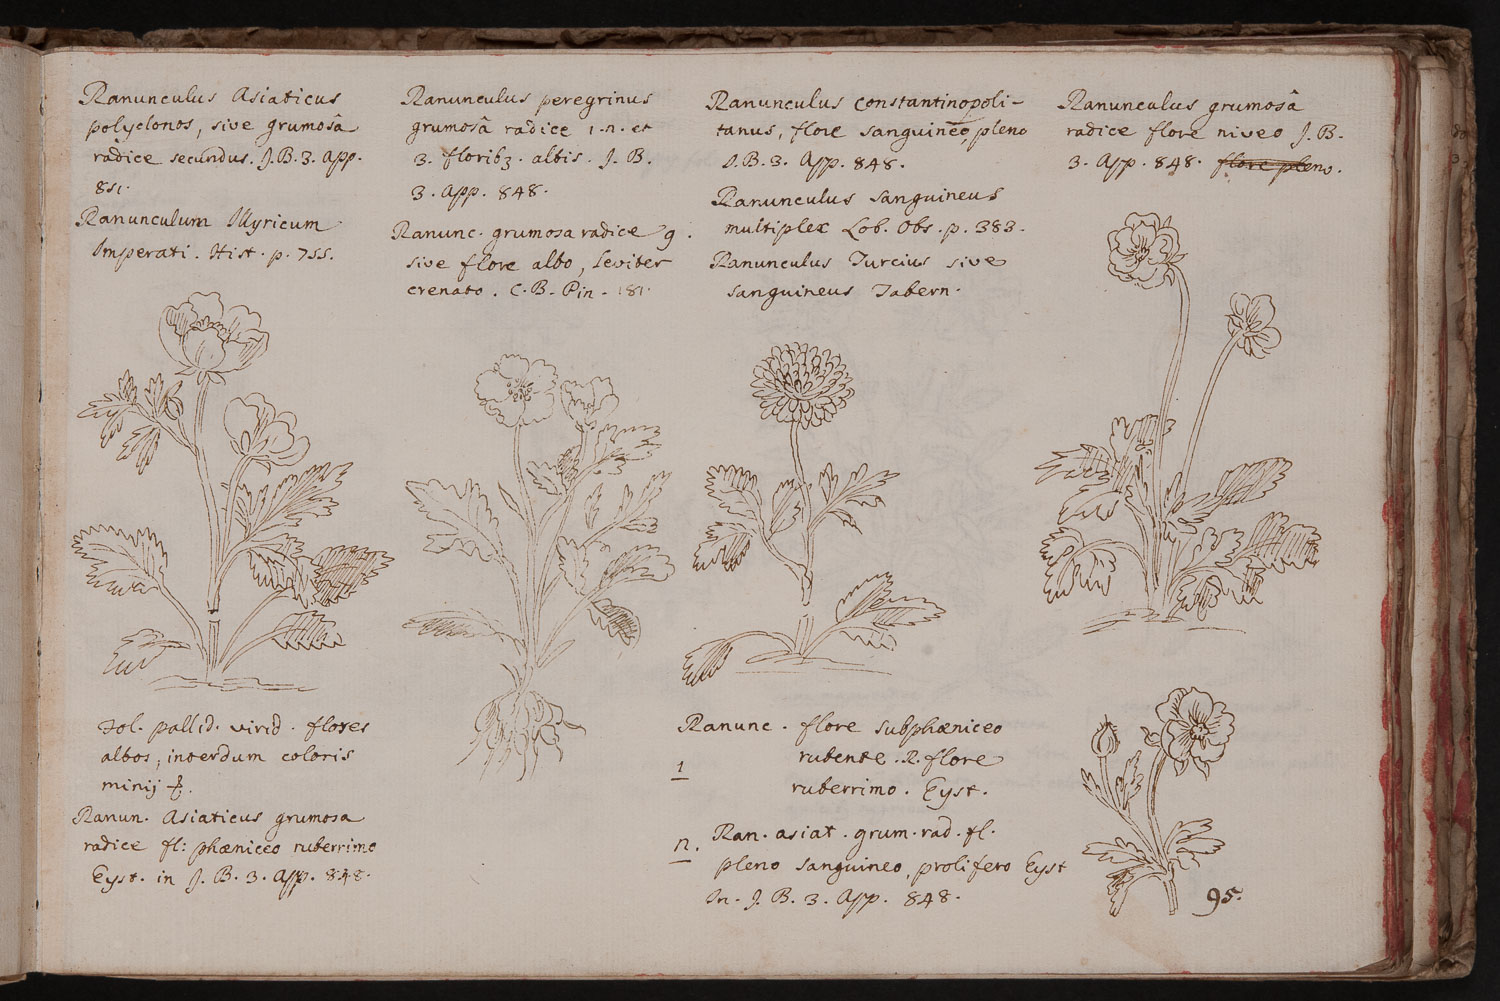 Ranunculus Asiaticus
polyclonos, sive grumosâ
radice secundus. J. B. 3. App.
851.
Ranunculum Illyricum
Imperati. Hist. p. 755.
Ranunculus peregrinus
grumosâ radice 1. n. et
3. floribʒ. albis. J. B.
3. App. 848.
Ranunc. grumosa radice 9.
sive flore albo, leviter
crenato. C. B. Pin. 181.
Ranunculus constantinopoli-
tanus, flore sanguineo, pleno
J. B. 3. App. 848.
Ranunculus sanguineus
multiplex Lob. Obs. p. 383.
Ranunculus Turcius sive
sanguineus Tabern.
Ranunculus grumosâ
radice flore niveo J. B.
3. App. 848. flore pleno.
Fol. pallid. virid. flores
albos, interdum coloris
minij
Ranun. Asiaticus grumosa
radice fl: phæniceo ruberrimo
Eyst. in J. B. 3. App. 848.
Ranunc. flore subphæniceo
1 rubente. R. flore
ruberrimo. Eyst.
n. Ran. asiat. grum. rad. fl.
pleno sanguineo, prolifero Eyst
In. J. B. 3. App. 848.
95.